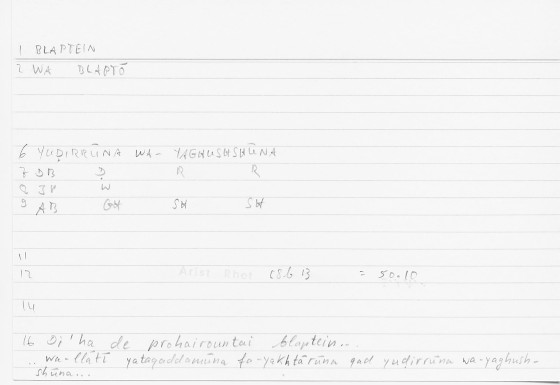 1 BLAPTEIN
2 WA BLAPTŌ
6 YUḌIRRŪNA WA- YAGHUSHSHŪNA
7 DB Ḍ R R
8 JP W
9 AB GH SH SH
11
12 Arist Rhet 68.6 13 = 50.10
14
16 Di'ha de prohairountai blaptein...
.. wa-llātī yataqaddamūna fa-yakhtārūna qad yuḍirrūna wa-yaghush-
shūna...